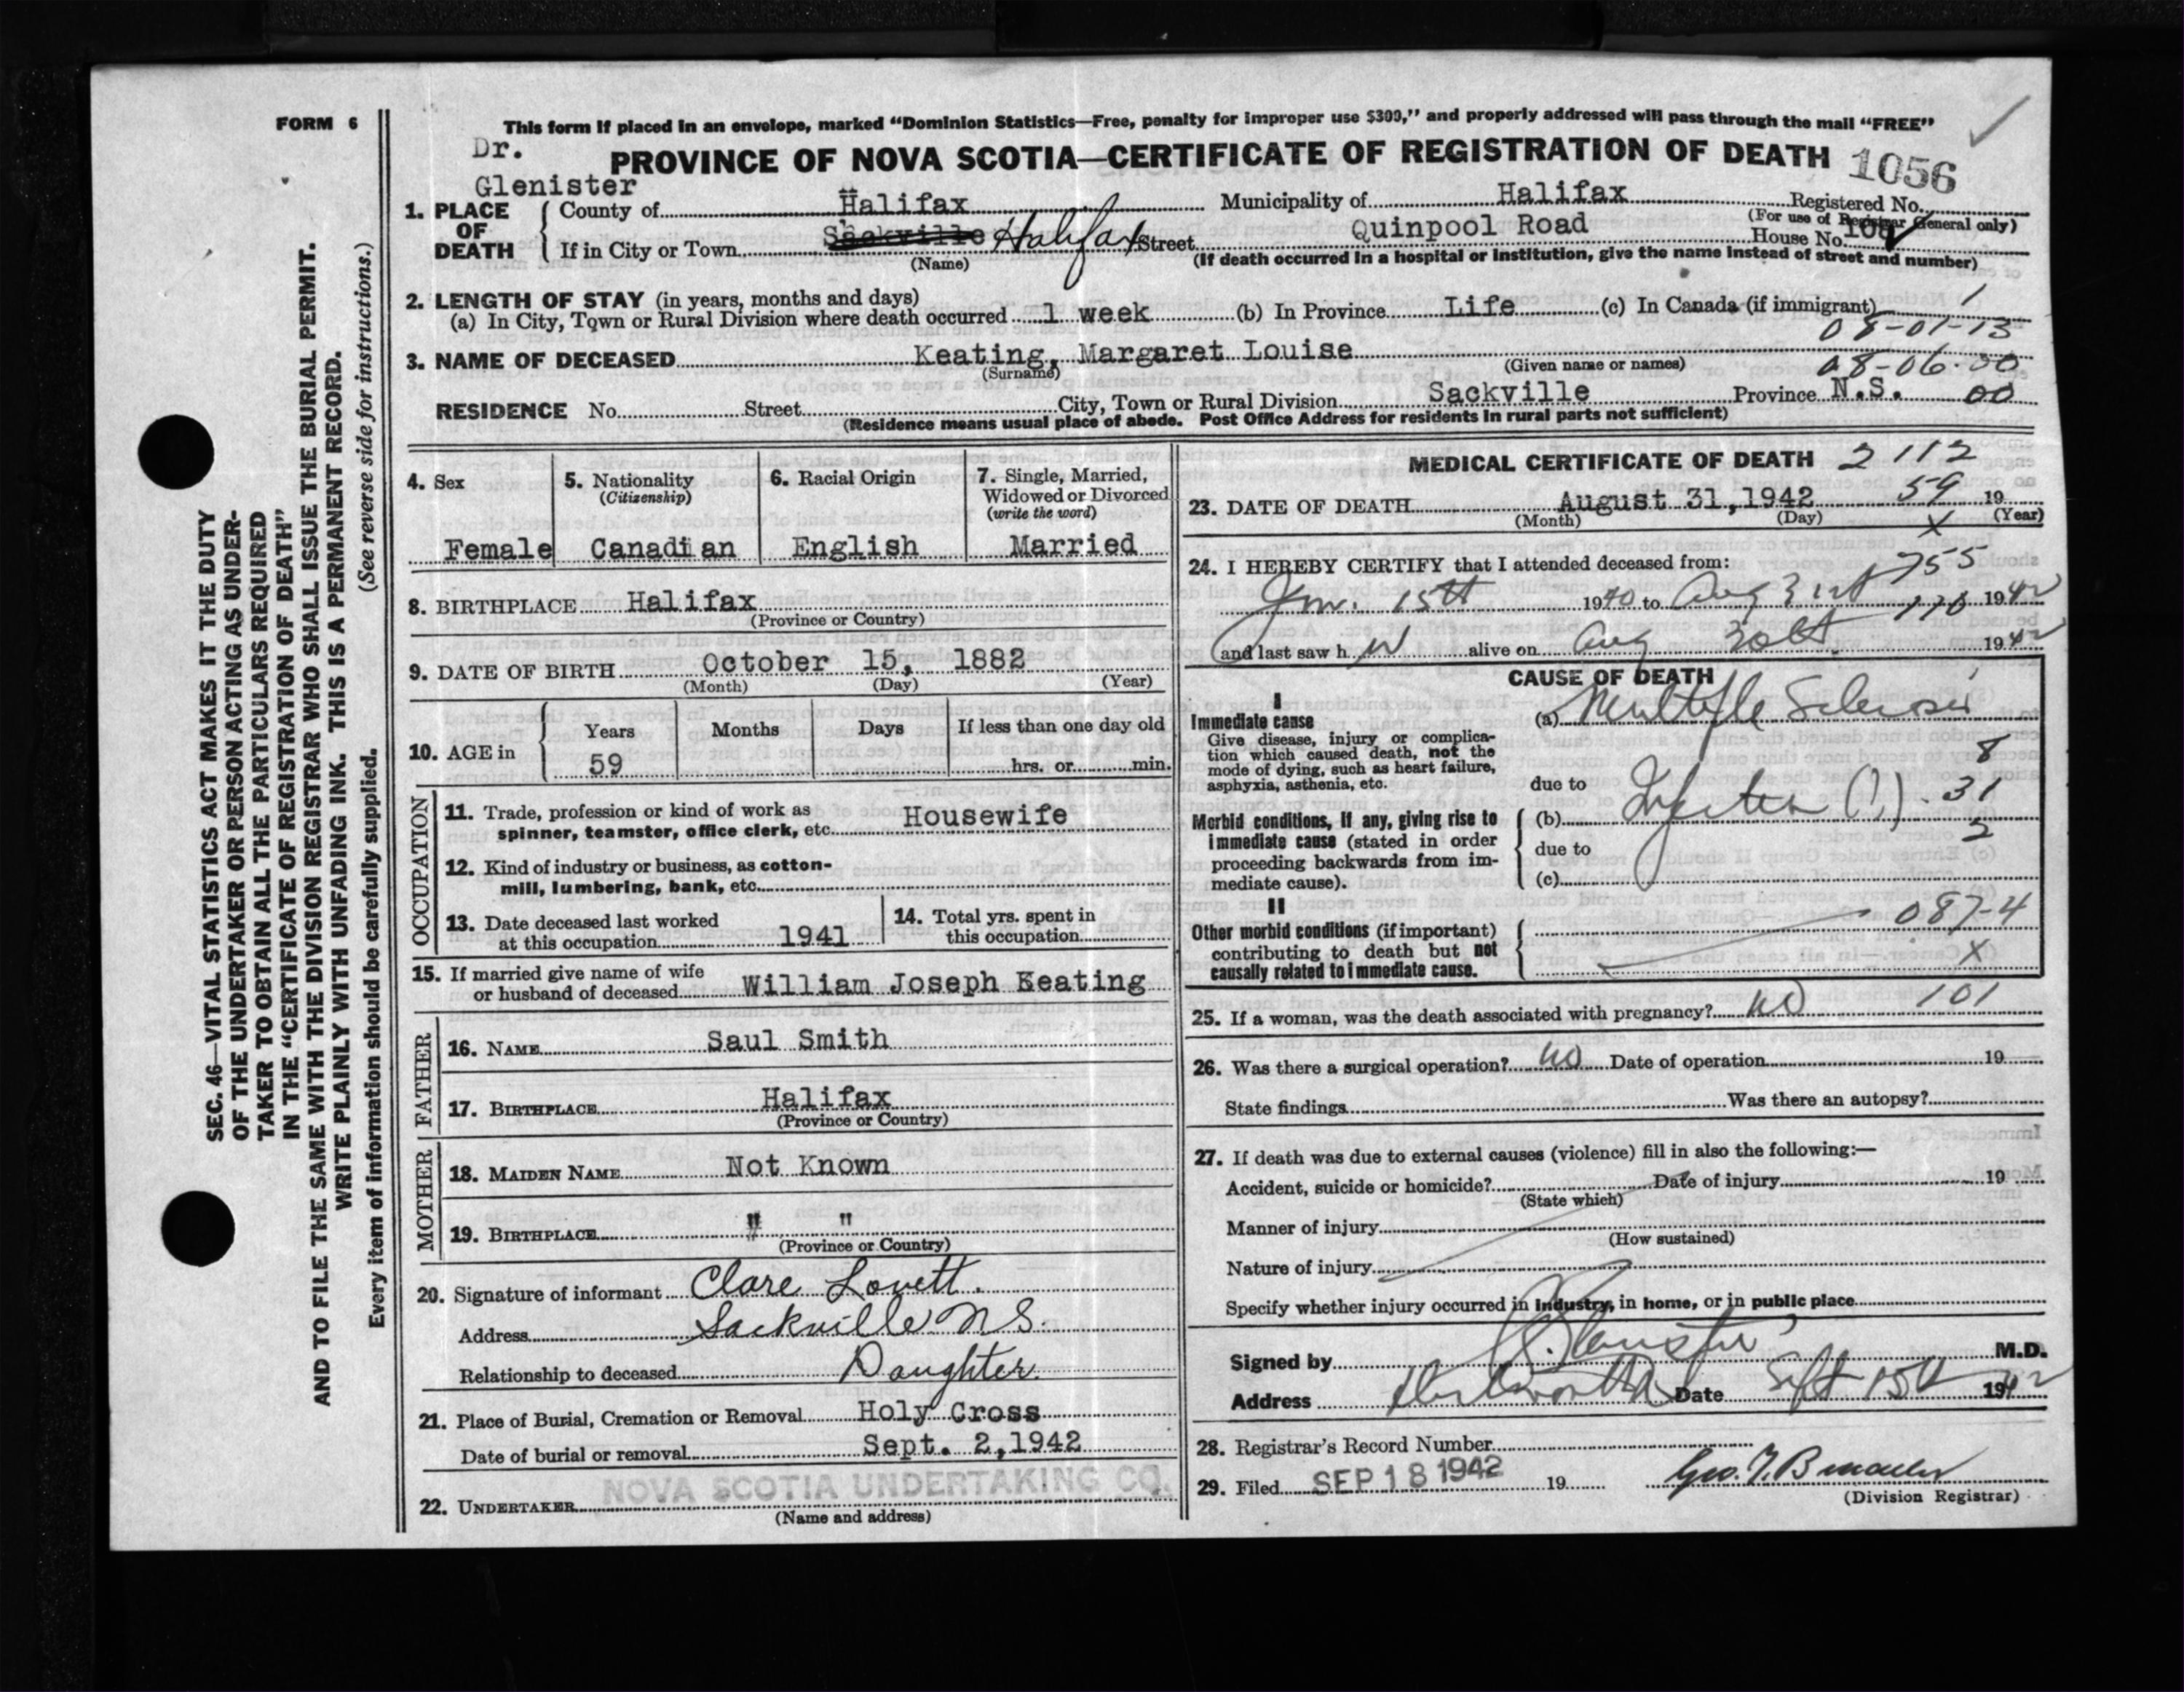 FORM 6
SEC. 46—VITAL STATISTICS ACT MAKES IT THE DUTY
OF THE UNDERTAKER OR PERSON ACTING AS UNDER-
TAKER TO OBTAIN ALL THE PARTICULARS REQUIRED
IN THE "CERTIFICATE OF REGISTRATION OF DEATH"
AND TO FILE THE SAME WITH THE DIVISION REGISTRAR WHO SHALL ISSUE THE BURIAL PERMIT.
WRITE PLAINLY WITH UNFADING INK. THIS IS A PERMANENT RECORD.
Every item of information should be carefully supplied. (See reverse side for instructions.)
This form if placed in an envelope, marked "Dominion Statistics—Free, penalty for improper use $300," and properly addressed will pass through the mail "FREE"
Dr.
Glenister
PROVINCE OF NOVA SCOTIA—CERTIFICATE OF REGISTRATION OF DEATH 1056
1. PLACE OF DEATH
County of Halifax Municipality of Halifax Registered No.
(For use of Registrar General only)
If in City or Town Sackville Halifax Street Quinpool Road House No.
(Name) (If death occurred in a hospital or institution, give the name instead of street and number)
2. LENGTH OF STAY (in years, months and days)
(a) In City, Town or Rural Division where death occurred 1 week (b) In Province Life (c) In Canada (if immigrant) 1
08-01-13
3. NAME OF DECEASED Keating, Margaret Louise
(Surname) (Given name or names) 08-06-00
RESIDENCE No. Street City, Town or Rural Division Sackville Province N.S. 00
(Residence means usual place of abode. Post Office Address for residents in rural parts not sufficient)
4. Sex
Female
5. Nationality
(Citizenship)
Canadian
6. Racial Origin
English
7. Single, Married,
Widowed or Divorced
(write the word)
Married
8. BIRTHPLACE Halifax
(Province or Country)
9. DATE OF BIRTH October 15, 1882
(Month) (Day) (Year)
10. AGE in
Years Months Days If less than one day old
59 hrs. or min.
OCCUPATION
11. Trade, profession or kind of work as
spinner, teamster, office clerk, etc. Housewife
12. Kind of industry or business, as cotton-
mill, lumbering, bank, etc.
13. Date deceased last worked
at this occupation 1941
14. Total yrs. spent in
this occupation
15. If married give name of wife
or husband of deceased William Joseph Keating
FATHER
16. NAME Saul Smith
17. BIRTHPLACE Halifax
(Province or Country)
MOTHER
18. MAIDEN NAME Not Known
19. BIRTHPLACE " "
(Province or Country)
20. Signature of informant Clare Lovett.
Address Sackville N.S.
Relationship to deceased Daughter.
21. Place of Burial, Cremation or Removal Holy Cross
Date of burial or removal Sept. 2, 1942
NOVA SCOTIA UNDERTAKING CO.
22. UNDERTAKER
(Name and address)
MEDICAL CERTIFICATE OF DEATH 2112
23. DATE OF DEATH August 31, 1942 59 19
(Month) (Day) (Year)
X
24. I HEREBY CERTIFY that I attended deceased from:
755
Jan. 15th 1940 to Aug 31st 1942
and last saw h alive on Aug 30th. 1942
CAUSE OF DEATH
I
Immediate cause
Give disease, injury or complica-
tion which caused death, not the
mode of dying, such as heart failure,
asphyxia, asthenia, etc.
(a) Multiple Sclerosis
8
due to
Morbid conditions, if any, giving rise to
immediate cause (stated in order
proceeding backwards from im-
mediate cause).
(b) Infection (?). 31
2
due to
(c)
II
Other morbid conditions (if important)
contributing to death but not
causally related to immediate cause.
087-4
X
25. If a woman, was the death associated with pregnancy? no 101
26. Was there a surgical operation? no Date of operation 19
State findings Was there an autopsy?
27. If death was due to external causes (violence) fill in also the following:—
Accident, suicide or homicide? Date of injury 19
(State which)
Manner of injury
(How sustained)
Nature of injury
Specify whether injury occurred in industry, in home, or in public place
Signed by Glenister M.D.
Address Date Sept 15th 1942
28. Registrar's Record Number
29. Filed SEP 18 1942 19
(Division Registrar)